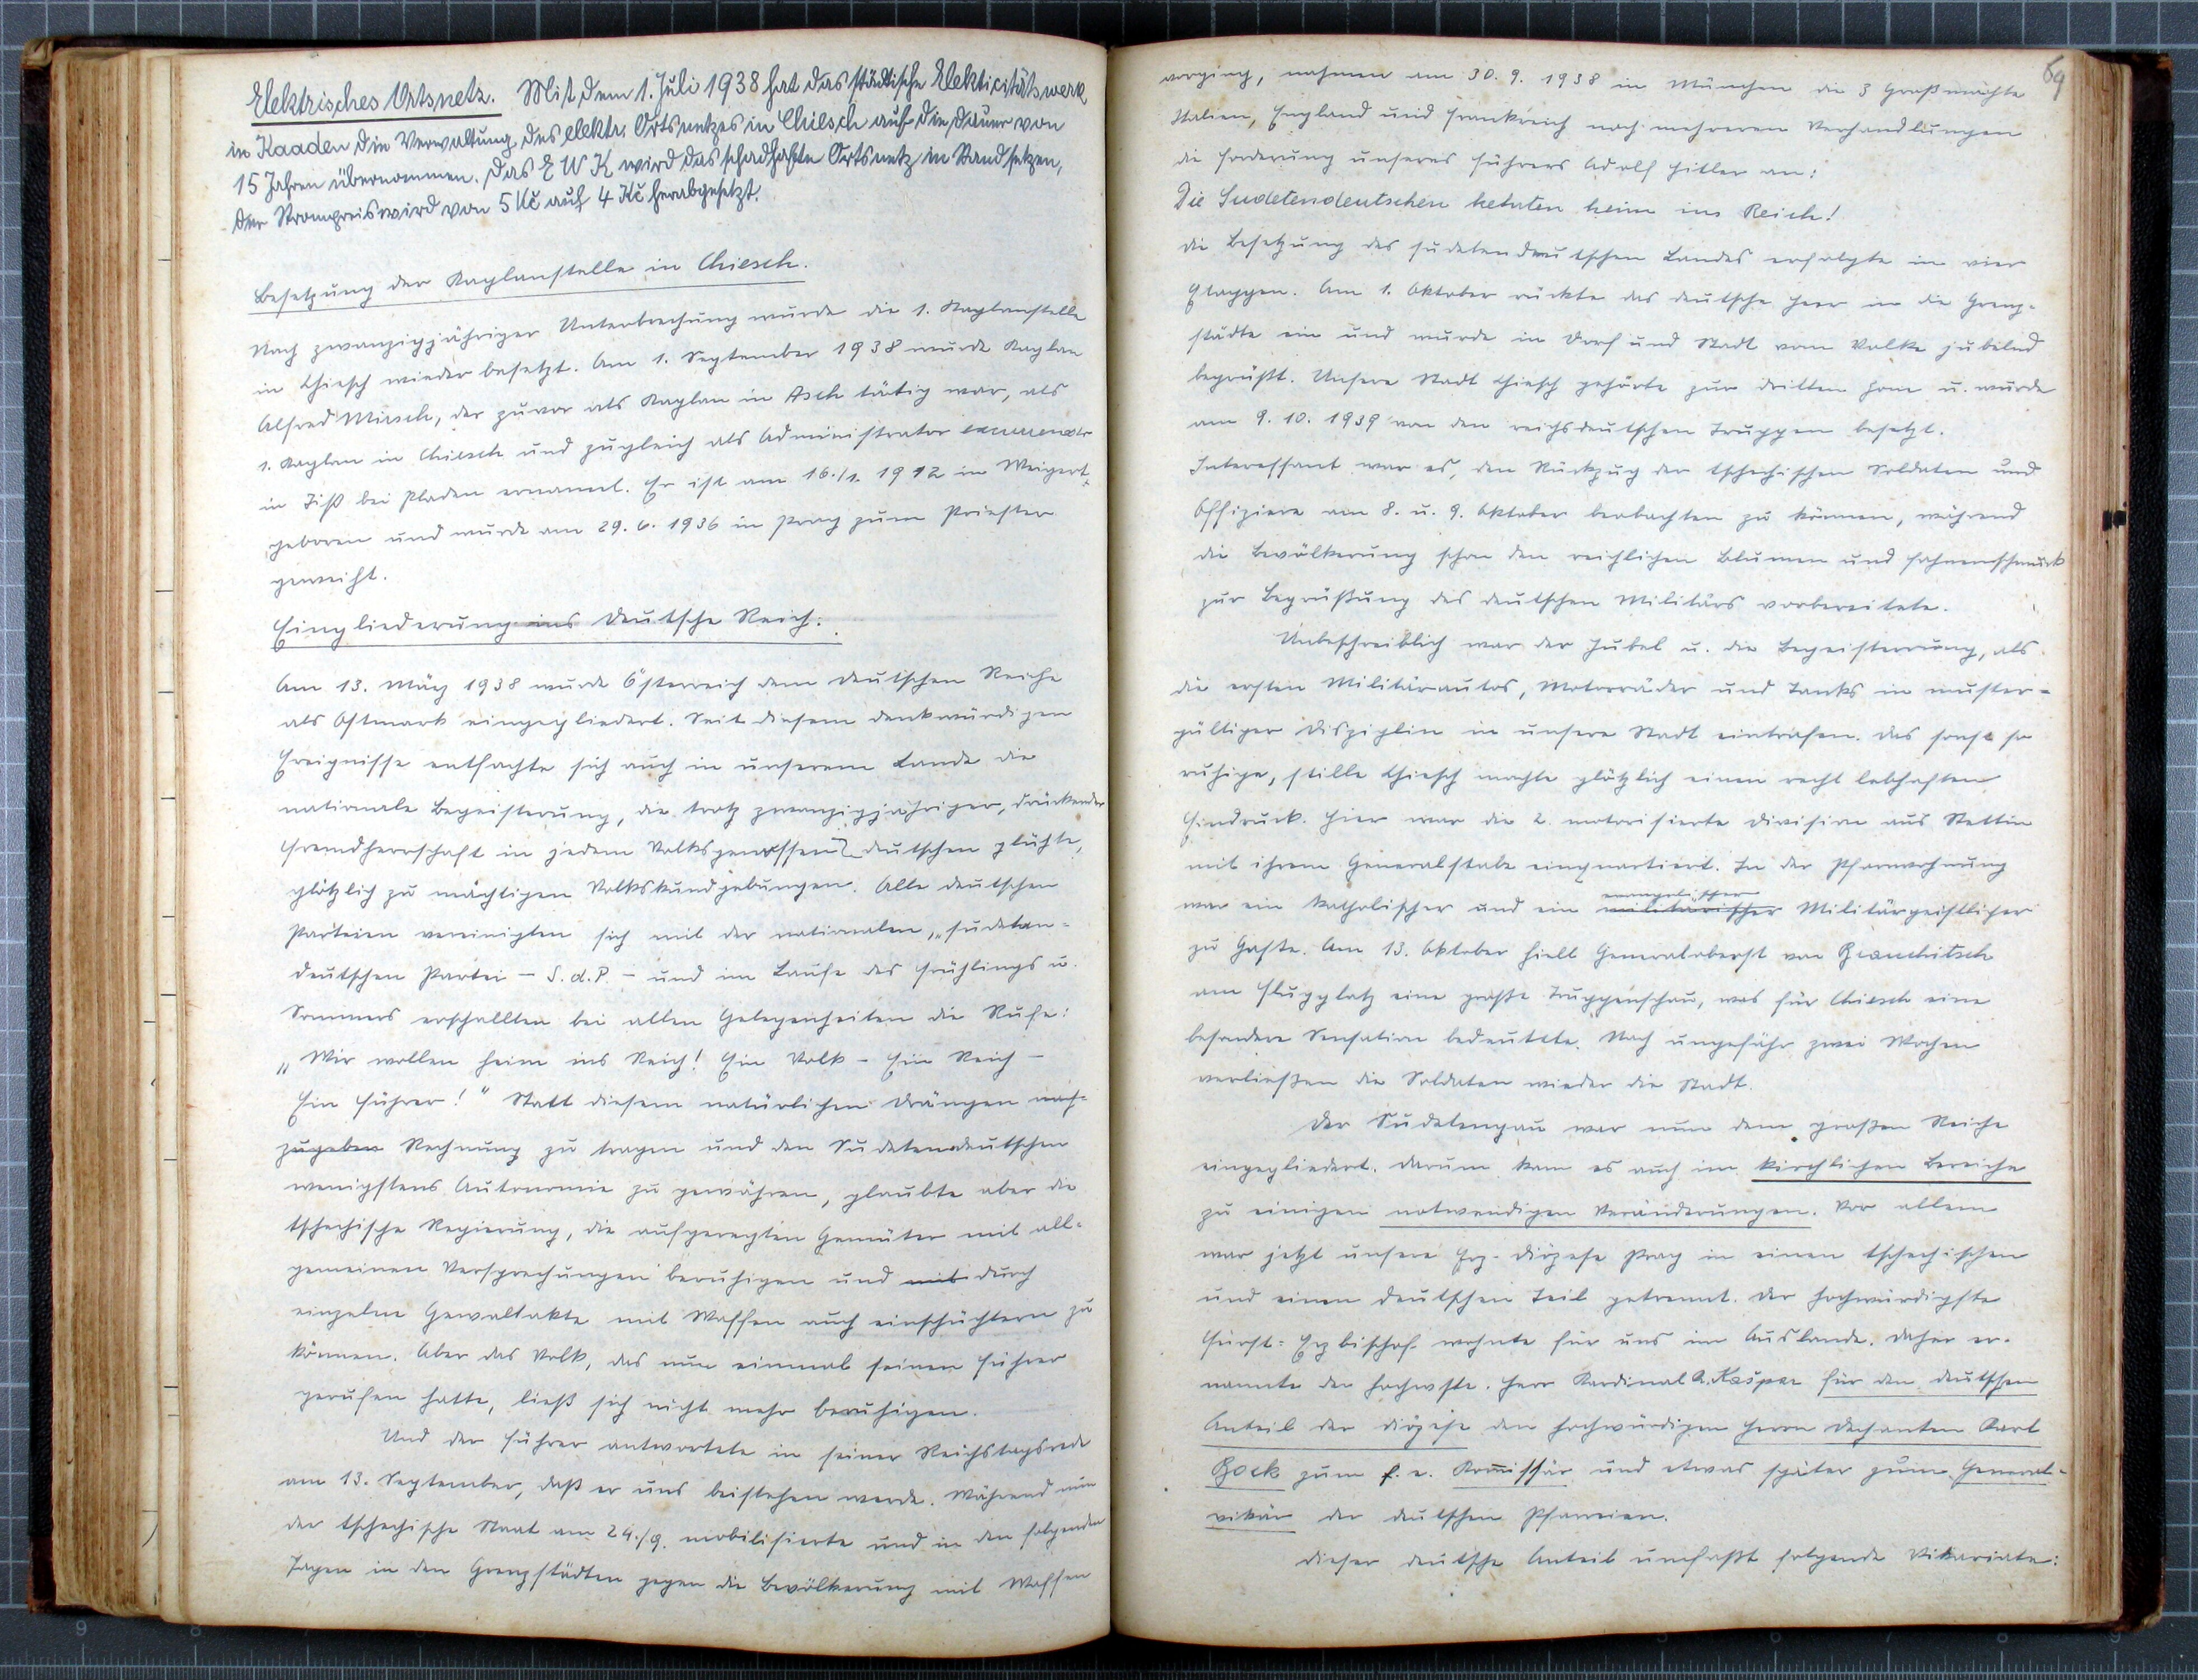 Elektrisches Ortsnetz. Mit dem 1. Juli 1938 hat das städtische Elekticitätswerk
in Kaaden die Verwaltung des elektr. Ortsnetzes in Chiesch auf die Dauer von
15 Jahren übernommen. Das E W K wird das schadhafte Ortsnetz in Stand setzen,
der Strompreis wird von 5 Kč auf 4 Kč herabgesetzt.
Besetzung der Kaplanstelle in Chiesch.
Nach zwanzigjähriger Unterbrechung wurde die 1. Kaplanstelle
in Chiesch wieder besetzt. Am 1. September 1938 wurde Kaplan
Alfred Mirsch, der zuvor als Kaplan in Asch tätig war, als
1. Kaplan in Chiesch und zugleich als Administrator excurrendo
in Tiß bei Pladen ernannt. Er ist am 16./1. 1912 in Weigert
geboren und wurde am 29. 6. 1936 in Prag zum Priester
geweiht.
Eingliederung ins Deutsche Reich:
Am 13. März 1938 wurde Österreich dem deutschen Reiche
als Ostmark eingegliedert. Seit diesem denkwürdigen
Ereignisse entfachte sich auch in unserem Lande die
nationale Begeisterung, die trotz zwanzigjähriger, drückender
Fremdherrschaft in jedem Volksgenossen deutschen glühte,
plötzlich zu mächtigen Volkskundgebungen. Alle deutschen
Parteien vereinigten sich mit der nationalen, „sudeten-
deutschen Partei – S.d.P. – und im Laufe des Frühlings u.
Sommers erschallten bei allen Gelegenheiten die Rufe:
„Wir wollen heim ins Reich! Ein Volk – Ein Reich –
Ein Führer!" Statt diesem natürlichen Drängen nach-
zugeben Rechnung zu tragen und den Sudetendeutschen
wenigstens Autonomie zu gewähren, glaubte aber die
tschechische Regierung, die aufgeregten Gemüter mit all-
gemeinen Versprechungen beruhigen und mit durch
einzelne Gewaltakte mit Waffen auch einschüchtern zu
können. Aber das Volk, das nun einmal seinen Führer
gerufen hatte, ließ sich nicht mehr beruhigen.
Und der Führer antwortete in seiner Reichstagsrede
am 13. September, daß er uns beistehen werde. Während nun
der tschechische Staat am 24./9. mobilisierte und in den folgenden
Tagen in den Grenzstädten gegen die Bevölkerung mit Waffen
69
vorging, nahmen am 30. 9. 1938 in München die 3 Großmächte
Italien, England und Frankreich nach mehreren Verhandlungen
die Forderung unseres Führers Adolf Hitler an:
Die Sudetendeutschen kehrten heim ins Reich!
Die Besetzung des sudetendeutschen Landes erfolgte in vier
Etappen. Am 1. Oktober rückte das deutsche Heer in die Grenz-
städte ein und wurde in Dorf und Stadt vom Volke jubelnd
begrüßt. Unsere Stadt Chiesch gehörte zur dritten Zone u. wurde
am 9. 10. 1939 von den reichsdeutschen Truppen besetzt.
Interessant war es, den Rückzug der tschechischen Soldaten und
Offiziere am 8. u. 9. Oktober beobachten zu können, während
die Bevölkerung schon den reichlichen Blumen und Fahnenschmuck
zur Begrüßung des deutschen Militärs vorbereitete.
Unbeschreiblich war der Jubel u. die Begeisterrung, als
die ersten Militärautos, Motorräder und Tanks in muster-
gültiger Disziplin in unsere Stadt eintrafen. Das sonst so
ruhige, stille Chiesch machte plötzlich einen recht lebhaften
Eindruck. Hier war die 2. motorisierte Division aus Stettin
mit ihrem Generalstabe einquartiert. In der Pfarrwohnung
war ein katholischer und ein militärischer evangelischer Militärgeistlicher
zu Gaste. Am 13. Oktober hielt Generaloberst von Brauchitsch
am Flugplatz eine große Truppenschau, was für Chiesch eine
besondere Sensation bedeutete. Nach ungefähr zwei Wochen
verließen die Soldaten wieder die Stadt.
Der Sudetengau war nun dem großen Reiche
eingegliedert. Darum kam es auch im kirchlichen Bereiche
zu einigen notwendigen Veränderungen. Vor allem
war jetzt unsere Erz-Diözese Prag in einen tschechischen
und einen deutschen Teil getrennt. Der hochwürdigste
Fürst-Erzbischof wohnte für uns im Auslande. Daher er-
nannte der hochwste. Herr Kardinal K. Kašpar für den deutschen
Anteil der Diözese den hochwürdigen Herrn Dechanten Karl
Bock zum f. e. Kom̅issär und etwas später zum General-
vikär der deutschen Pfarreien.
Dieser deutsche Anteil umfaßt folgende Vikariate: